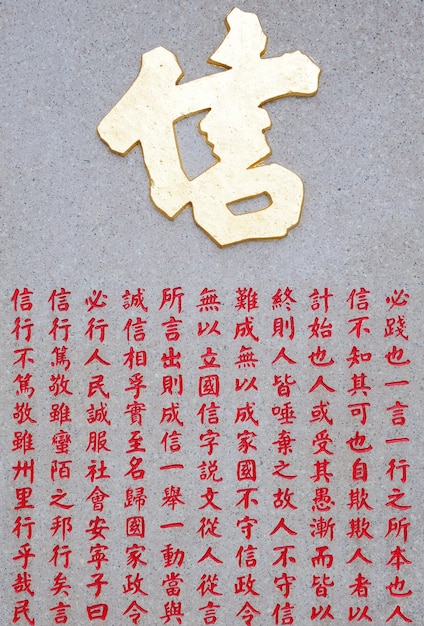 信
必踐也一言一行之所本也人
信不知其可也自欺欺人者以
計始也人或受其愚漸而皆以
終則人皆唾棄之故人不守信
難成無以成家國不守信政令
無以立國信字説文從人從言
所言出則成信一舉一動當與
誠信相孚實至名歸國家政令
必行人民誠服社會安寧子曰
信行篤敬雖蠻陌之邦行矣言
信行不篤敬雖州里行乎哉民